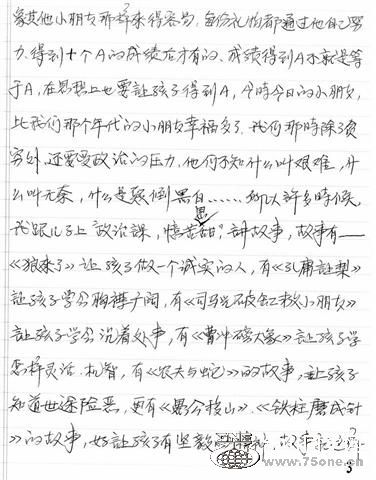 象其他小朋友那样来得容易，每份礼物都通过他自己努
力得到十个A的成绩后才有的，成绩得到A不就是等
于A，在思想上也要让孩子得到A，今时今日的小朋友，
比我们那个年代的小朋友幸福多了，我们那时除了贫
穷外，还要受政治的压力，他们不知什么叫艰难，什
么叫无奈，什么是颠倒黑白……所以许多时候，
我跟儿子上政治课，忆苦思甜，讲故事，故事有——
《狼来了》让孩子做一个诚实的人，有《孔庸让梨》
让孩子学会胸襟广阔，有《司马光破缸救小朋友》
让孩子学会沉着处事，有《曹冲磅大象》让孩子学
怎样灵活、机智，有《农夫与蛇》的故事，让孩子
知道世途险恶，更有《愚公移山》、《铁柱磨成针
》的故事，好让孩子有坚毅 故事
www.75one.cn
3